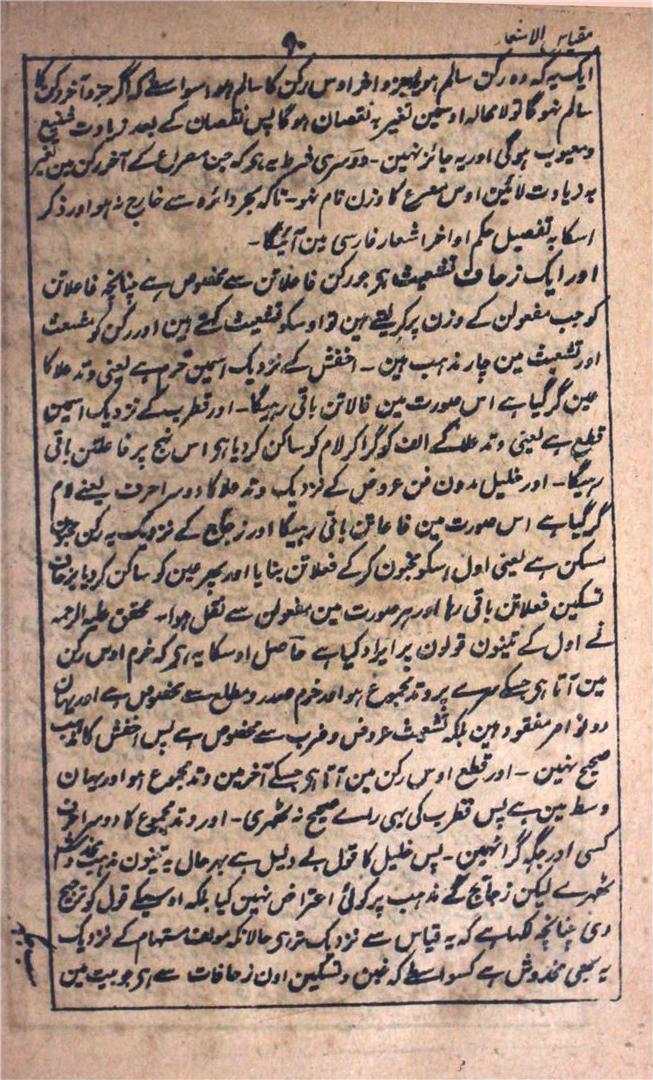 مقیاس الاشعار
۹۰
ایک یہ کہ وہ رکن سالم ہو یعنی جزو آخر اوس رکن کا سالم ہو اسواسطے کہ اگر جزو آخر رکن کا
سالم نہوگا تو لامحالہ اوسمین تغیر بہ نقصان ہوگا پس نقصان کے بعد زیادت شنیع
و معیوب ہوگی اور یہ جائز نہین ۔ دوسری شرط یہ ہو کہ جس مصراع کے آخر رکن مین تغیر
بہ زیادت لائین اوس مصرع کا وزن تام نہو ۔ تاکہ بحر دائرہ سے خارج نہ ہو اور ذکر
اسکا بہ تفصیل حکم اواخر اشعار فارسی مین آئیگا ۔
اور ایک زحاف تشعیث ہر جو رکن فاعلاتن سے مخصوص ہے چنانچہ فاعلاتن
کو جب مفعولن کے وزن پر کر لیتے ہین تو اوسکو تشعیث کہتے ہین اور رکن کو مشعث
اور تشعیث مین چار مذہب ہین ۔ اخفش کے نزدیک اسمین خرم ہے یعنی وتد علا کا
عین گر گیا ہے اس صورت مین فالاتن باقی رہیگا ۔ اور قطرب کے نزدیک اسمین
قطع ہے یعنی وتد علا کے الف کو گرا کر لام کو ساکن کر دیا ہو اس نہج پر فاعلتن باقی
رہیگا ۔ اور خلیل مدون فن عروض کے نزدیک وتد علا کا دوسرا حرف یعنے لام
گر گیا ہے اس صورت مین فاعاتن باقی رہیگا اور زجاج کے نزدیک یہ رکن مخبون
مسکن ہے یعنی اول اسکو مخبون کر کے فعلاتن بنایا اور پھر عین کو ساکن کر دیا بزحاف
تسکین فعلاتن باقی رہا اور ہر صورت مین مفعولن سے نقل ہوا ۔ محقق علیہ الرحمہ
نے اول کے تینون قولون پر ایراد کیا ہے حاصل اوسکا یہ ہو کہ خرم اوس رکن
مین آتا ہر جسکے سرے پر وتد مجموع ہو اور خرم صدر و مطلع سے مخصوص ہے اور یہان
دونو امر مفقود ہین بلکہ تشعیث عروض و ضرب سے مخصوص ہے پس اخفش کا مذہب
صحیح نہین ۔ اور قطع اوس رکن مین آتا ہر جسکے آخر مین وتد مجموع ہو اور یہان
وسط مین ہے پس قطرب کی بھی راے صحیح نہ ٹھہری ۔ اور وتد مجموع کا دوسرا حرف
کسی اور جگہ گرا نہین ۔ پس خلیل کا قول بے دلیل ہے بہر حال یہ تینون مذہب
ٹھہرے لیکن زجاج کے مذہب پر کوئی اعتراض نہین کیا بلکہ اوسیکے قول کو ترجیح
دی چنانچہ لکھا ہے کہ یہ قیاس سے نزدیک تر ہو حالانکہ مولف مستہام کے نزدیک
یہ بھی مخدوش ہے کسواسطے کہ خبن و تسکین اون زحافات سے ہر جو بیت مین